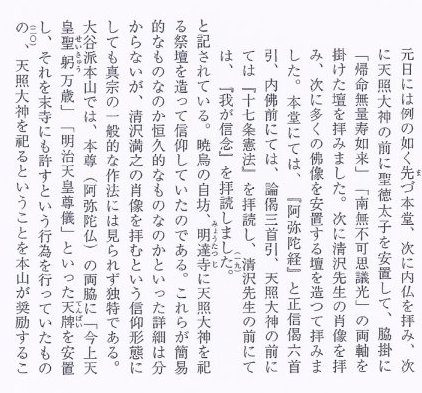 元日には例の如く先づ本堂、次に内仏を拝み、次
に天照大神の前に聖徳太子を安置して、脇掛に
「帰命無量寿如来」「南無不可思議光」の両軸を
掛けた壇を拝みました。次に清沢先生の肖像を拝
み、次に多くの佛像を安置する壇を造つて拝みま
した。本堂にては、『阿弥陀経』と正信偈六首
引、内佛前にては、論偈三首引、天照大神の前に
ては『十七条憲法』を拝読し、清沢先生の前にて
は、『我が信念』を拝読しました。(一九)
と記されている。暁烏の自坊、明達寺に天照大神を祀
る祭壇を造って信仰していたのである。これらが簡易
的なものなのか恒久的なものなのかといった詳細は分
からないが、清沢満之の肖像を拝むという信仰形態に
しても真宗の一般的な作法には見られず独特である。
大谷派本山では、本尊(阿弥陀仏)の両脇に「今上天
皇聖躬万歳」「明治天皇尊儀」といった天牌を安置
し、それを末寺にも許すという行為を行っていたもの
の、(二〇)天照大神を祀るということを本山が奨励するこ